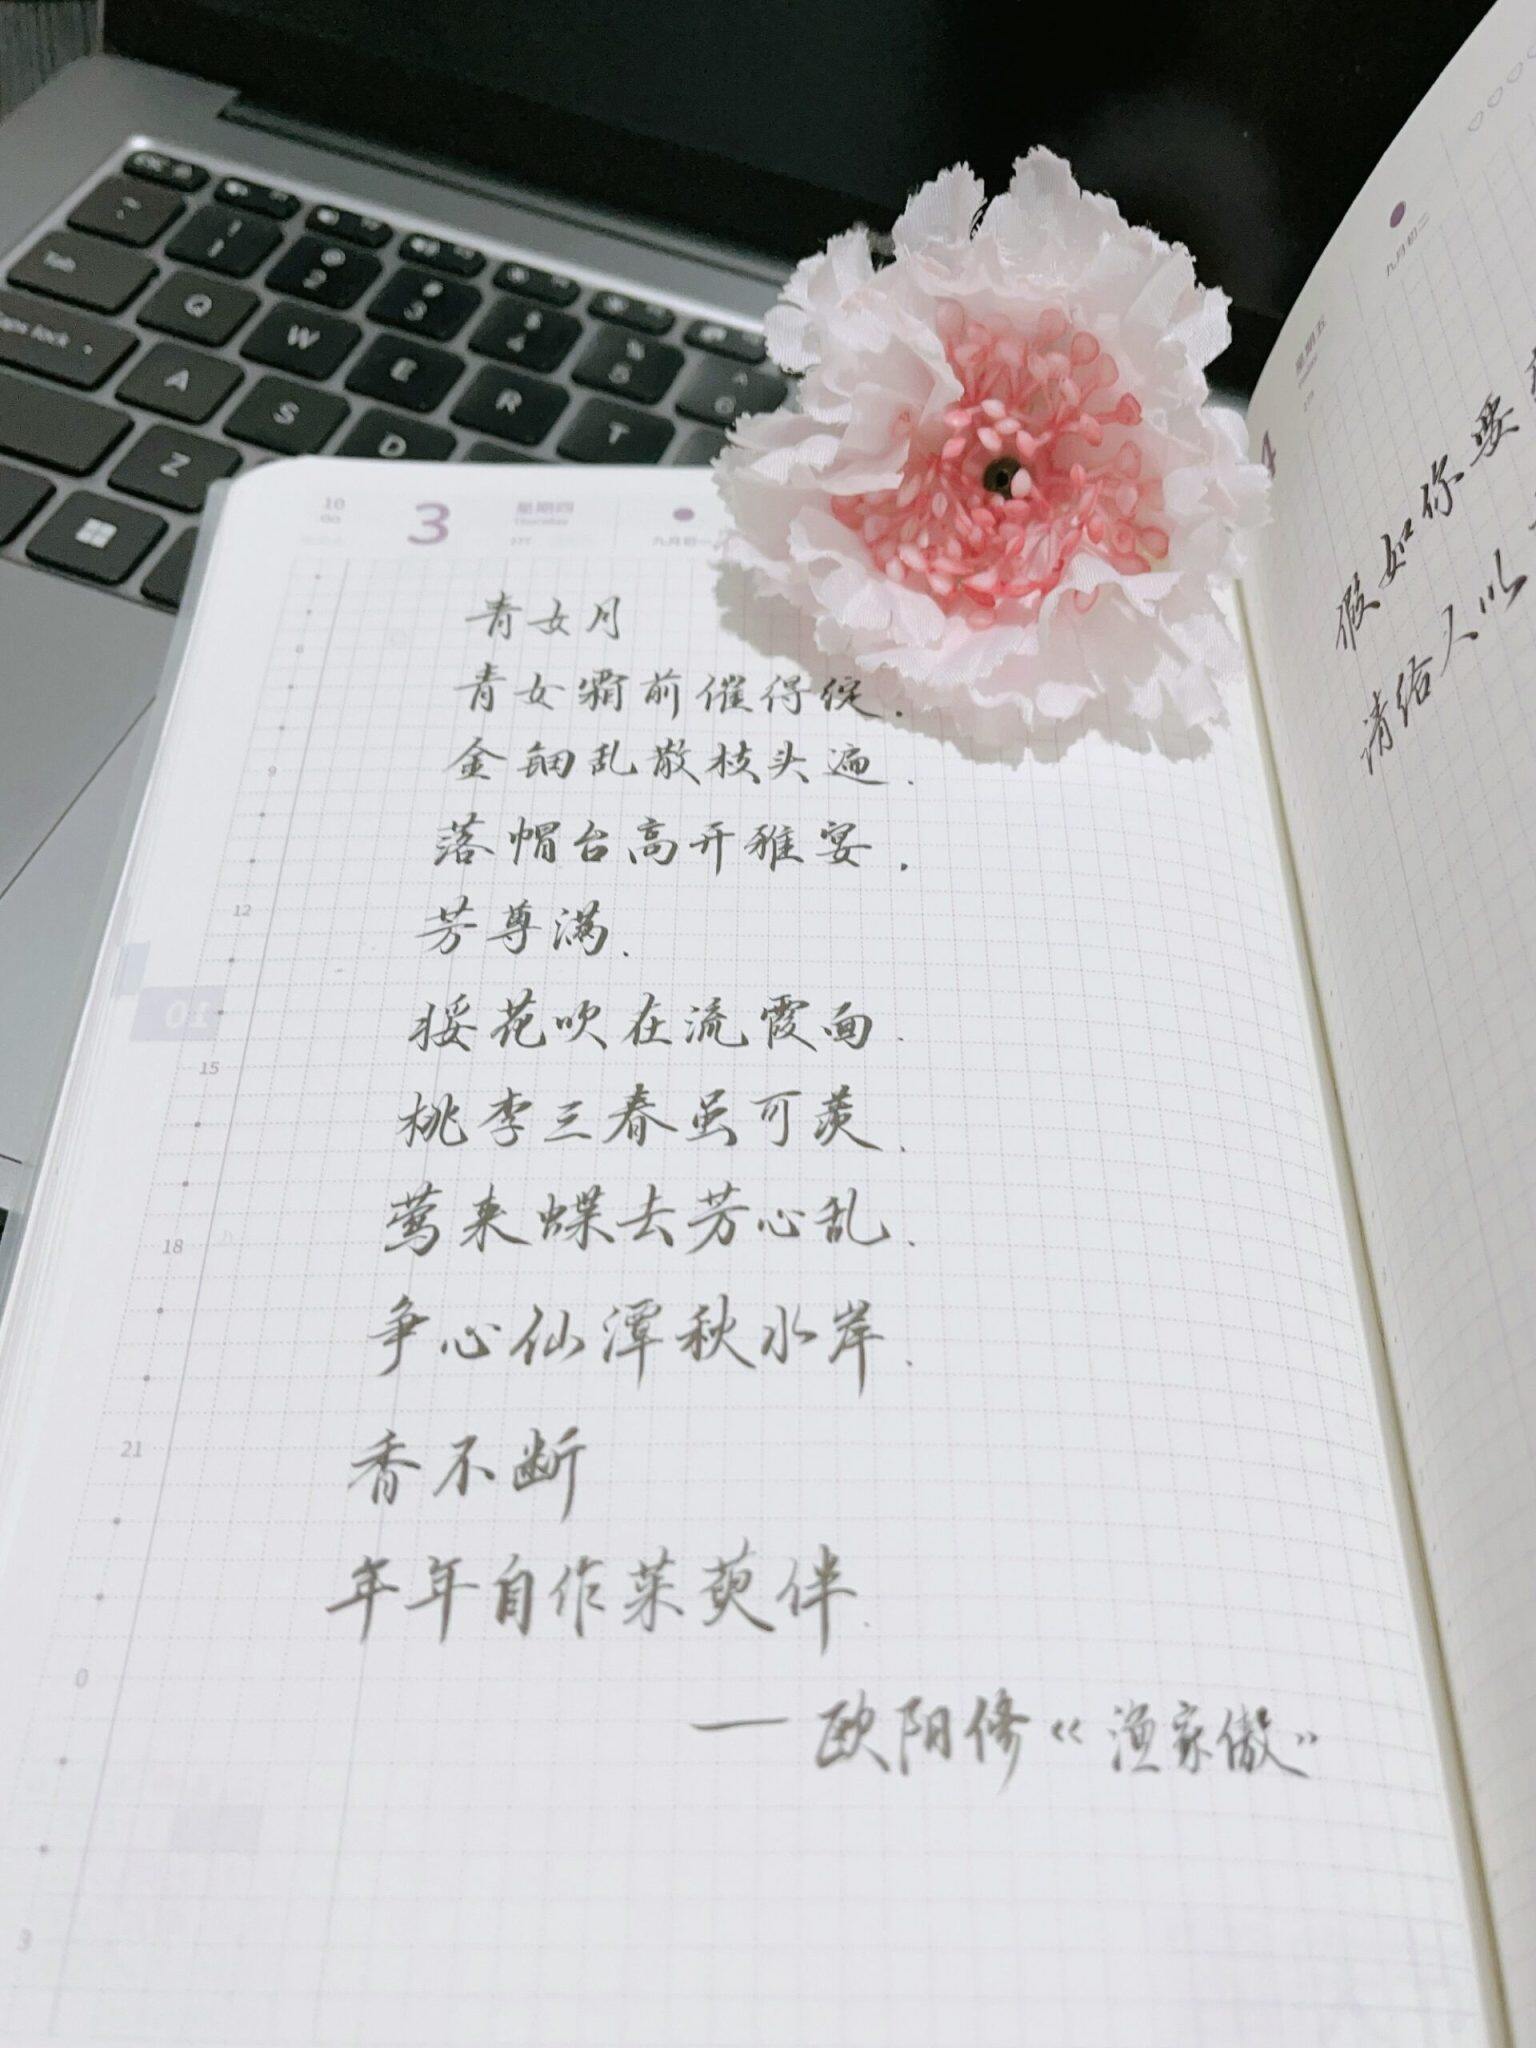 Tab
Caps lock
1
2
3
4
5
Q
W
E
R
T
A
S
D
Z
10
Oct
3
星期四
Thursday
277
九月初一
青女月
青女霜前催得绽.
金钿乱散枝头遍.
落帽台高开雅宴.
芳尊满.
挼花吹在流霞面.
桃李三春虽可羡.
莺来蝶去芳心乱.
争心仙潭秋水岸.
香不断
年年自作茱萸伴.
—欧阳修《渔家傲》
6
9
12
15
18
21
0
3
10
九月初二
星期五
4
假如你要
请给人以